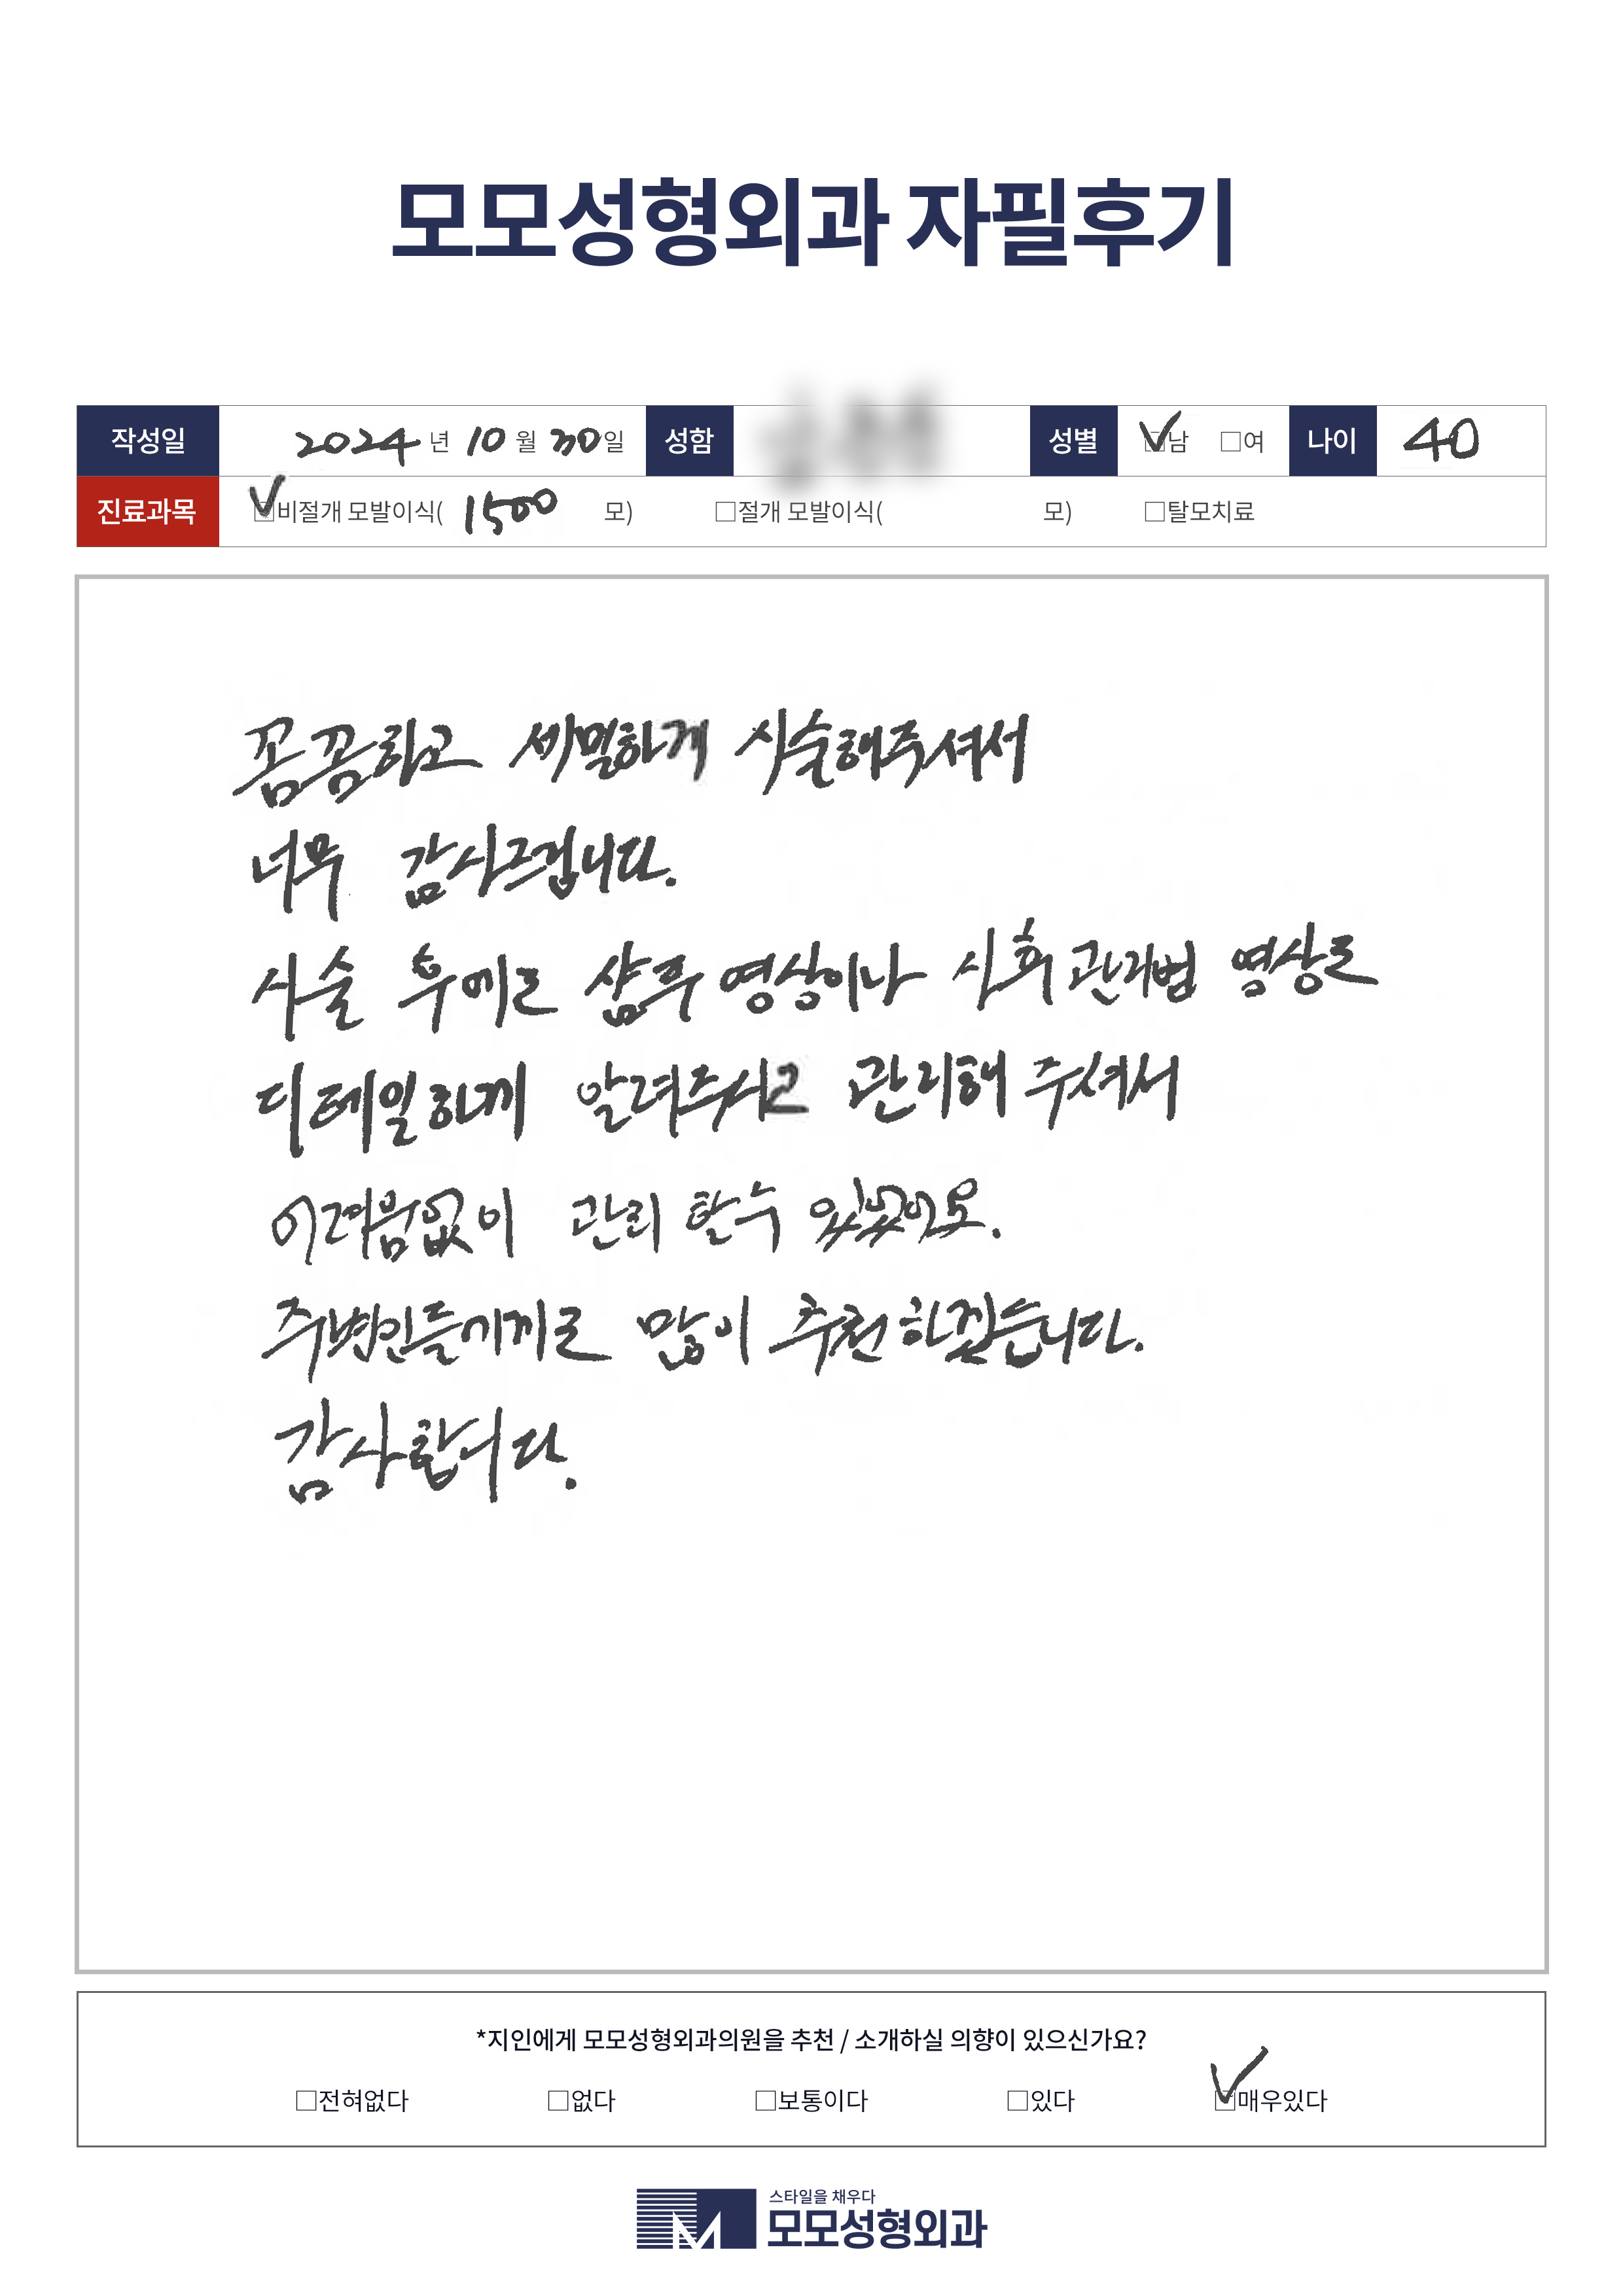 모모성형외과 자필후기
작성일 2024 년 10 월 30 일 성함 성별 ☑남 □여 나이 40
진료과목 ☑비절개 모발이식( 1500 모) □절개 모발이식( 모) □탈모치료
꼼꼼하고 세밀하게 시술해주셔서
너무 감사드립니다.
시술 후에도 샴푸 영상이나 사후 관리법 영상도
디테일하게 알려주시고 관리해 주셔서
어려움없이 관리 할수 있었어요.
주변인들에게도 많이 추천하겠습니다.
감사합니다.
*지인에게 모모성형외과의원을 추천 / 소개하실 의향이 있으신가요?
□전혀없다 □없다 □보통이다 □있다 ☑매우있다
스타일을 채우다
모모성형외과